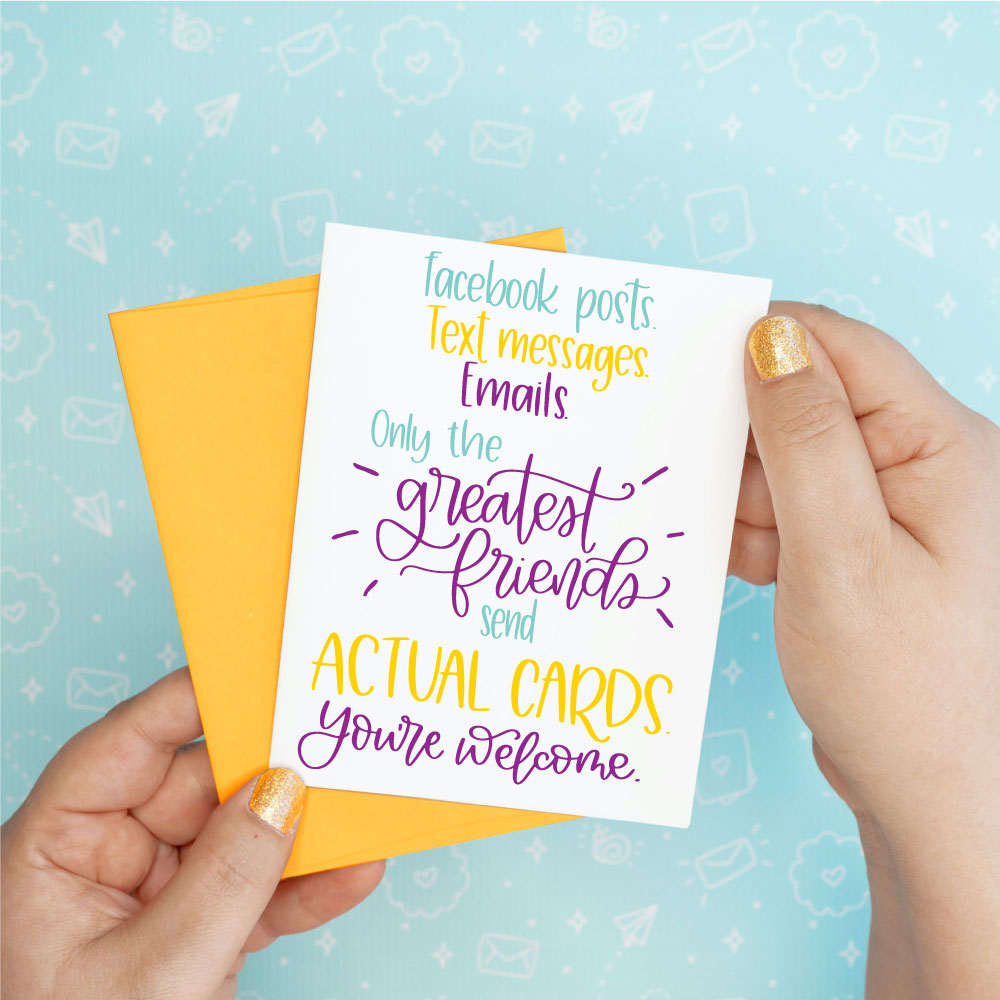 facebook posts.
Text messages.
Emails.
Only the
greatest
friends
send
ACTUAL CARDS.
you're welcome.